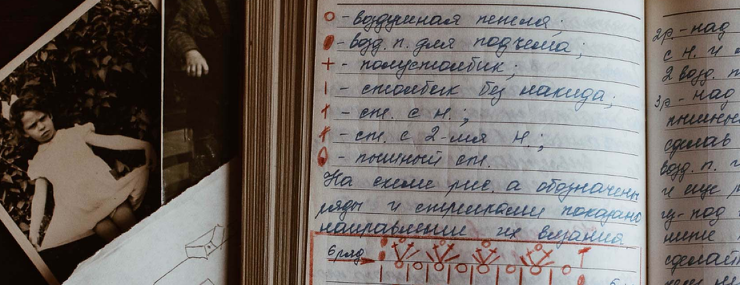 - воздушная петля;
- возд. п. для подъёма;
+ - полустолбик;
- столбик без накида;
- ст. с н.;
- ст. с 2-мя н.;
- пышный ст.
На схеме рис. а обозначены
ряды и стрелками показано
направление их вязания
6 ряд
2р - над
с н. и
2 возд. п
3р - над
пышны
сделав
возд. п.
и
под
сделай